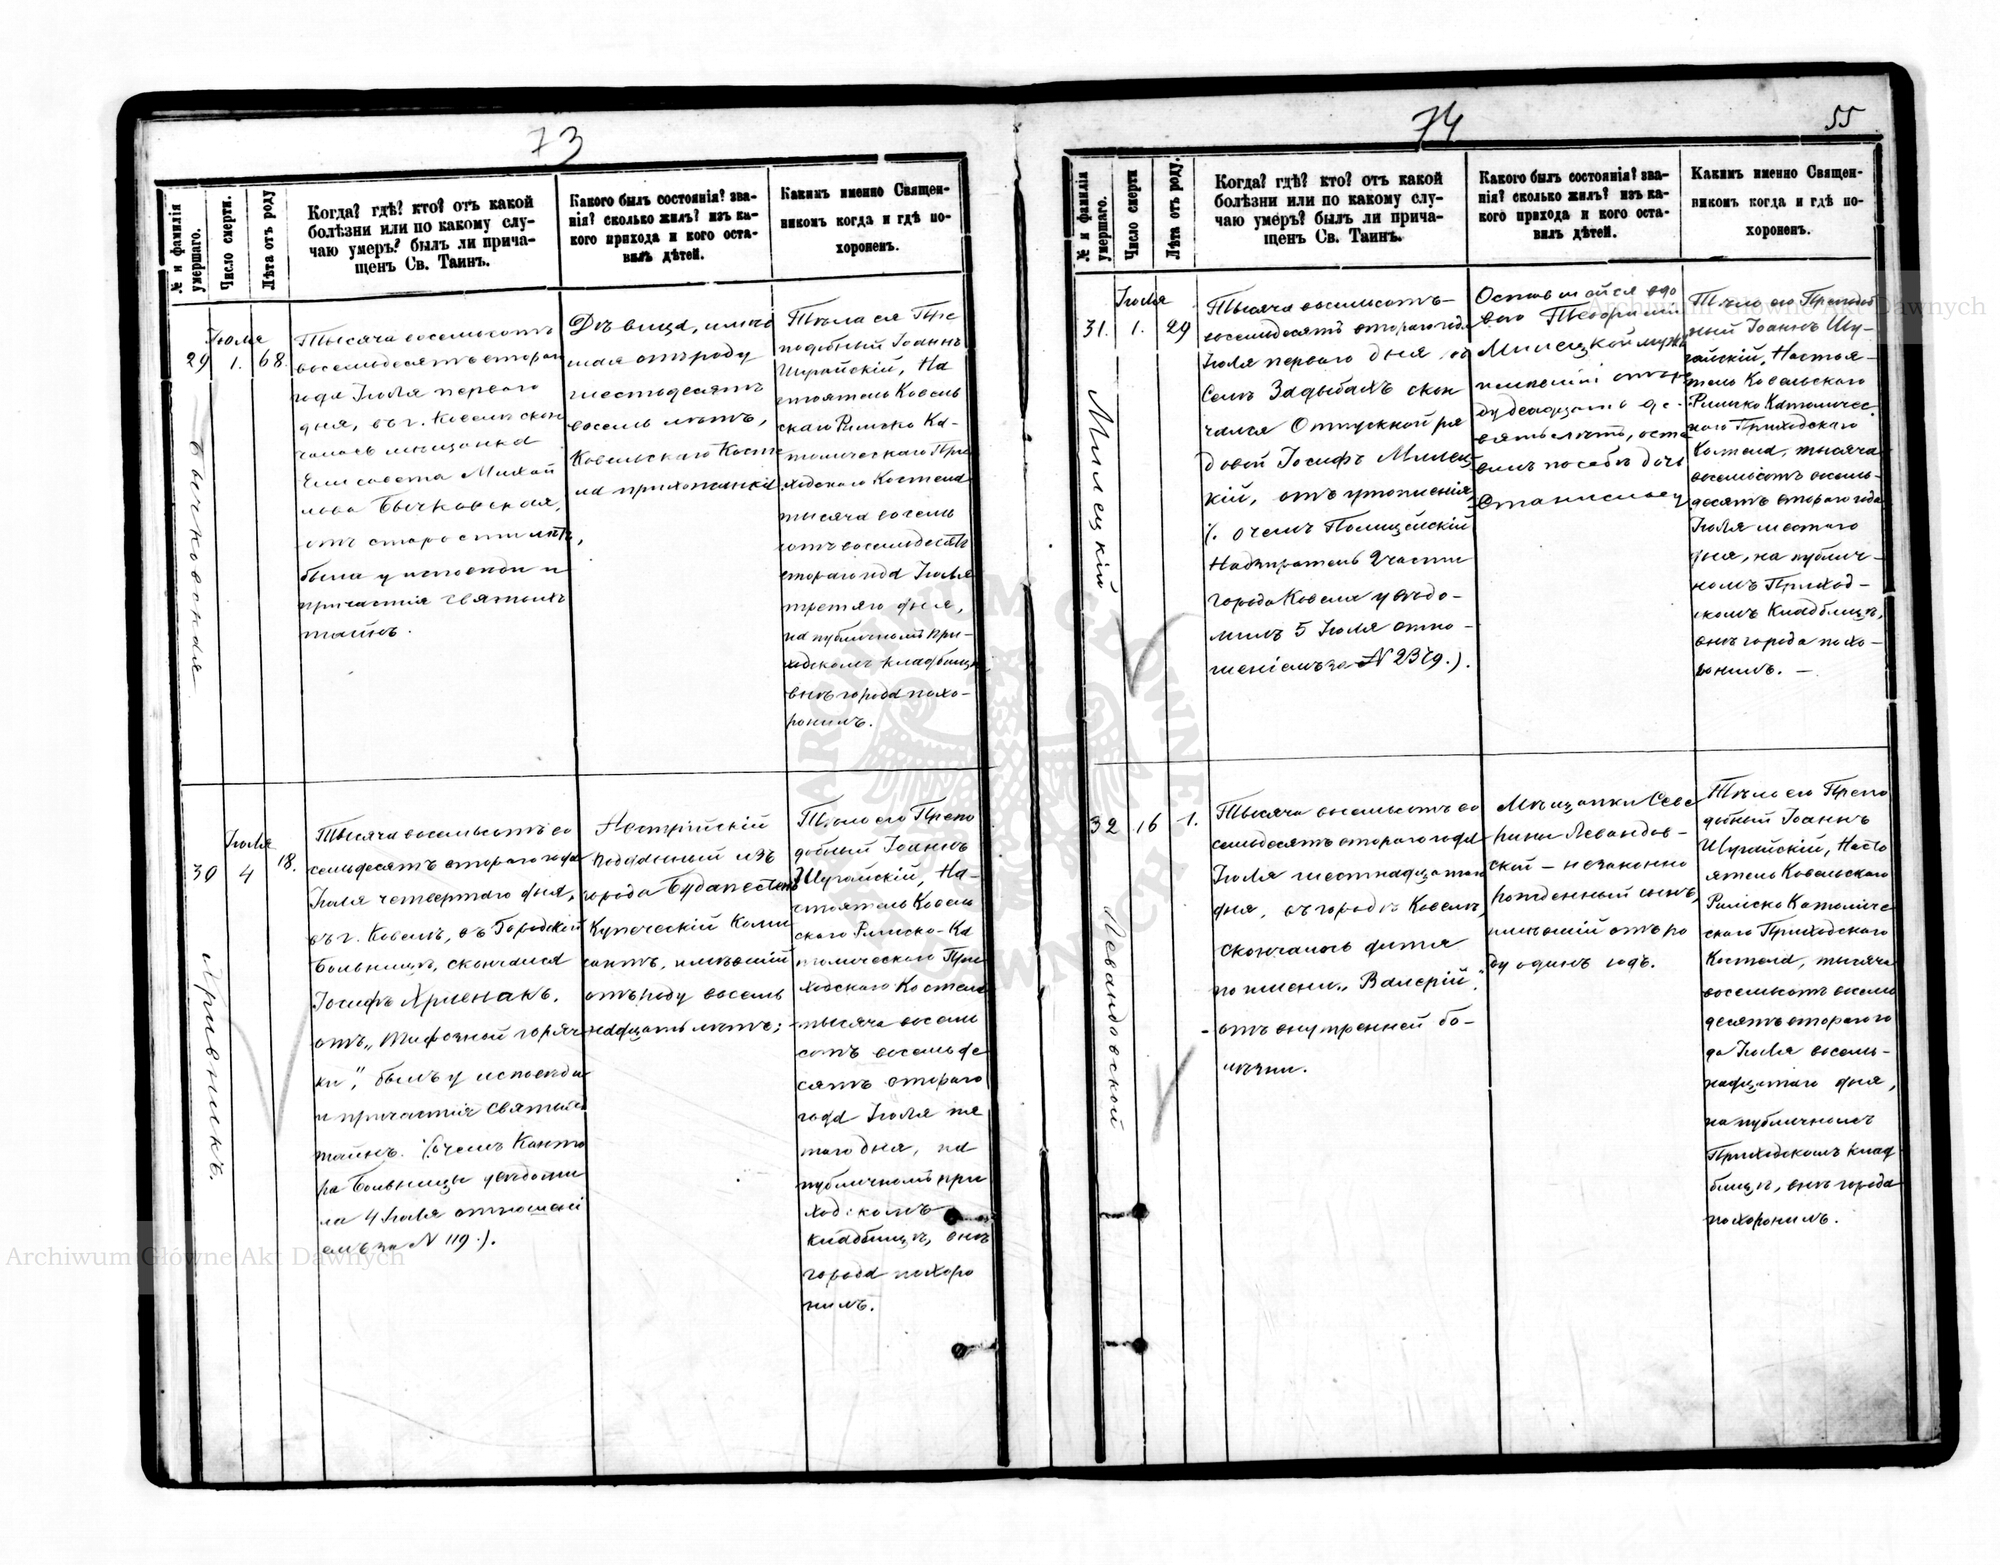 73
№ и фамилія умершаго.
Число смерти.
Лѣта отъ роду
Когда? гдѣ? кто? отъ какой
болѣзни или по какому слу-
чаю умеръ? былъ ли прича-
щенъ Св. Таинъ.
Какого былъ состоянія? зва-
нія? сколько жилъ? изъ ка-
кого прихода и кого оста-
вилъ дѣтей.
Какимъ именно Священ-
никомъ когда и гдѣ по-
хороненъ.
29
Бычковская
Іюля
1.
68.
Тысяча восемьсотъ
восемьдесятъ втораго
года Іюля перваго
дня, въ г. Ковелѣ скон
чалась мѣщанка
Елисавета Михай
лова Бычковская,
отъ старости лѣтъ,
была у исповѣди и
причастія Святыхъ
тайнъ.
Дѣвица, имѣв
шая отъ роду
шестьдесятъ
восемь лѣтъ,
Ковельскаго Косте
ла прихожанка
Тѣло ея Пре
подобный Іоаннъ
Шугайскій, На
стоятель Ковель
скаго Римско Ка-
толическаго При
ходскаго Костела
тысяча восемь
сотъ восемьдесятъ
втораго года Іюля
третяго дня,
на публичномъ при-
ходскомъ кладбищѣ
внѣ города похо-
ронилъ.
30
Хривникъ.
Іюля
4
18.
Тысяча восемьсотъ во
семьдесятъ втораго года
Іюля четвертаго дня,
въ г. Ковелѣ, въ Городской
Больницѣ, скончался
Іосифъ Хривнакъ.
отъ „Тифозной горяч
ки", былъ у исповѣди
и причастія Святыхъ
тайнъ. (: о чемъ Канто
ра Больницы увѣдоми
ла 4 Іюля отношені
емъ за N 119 :).
Австрійскій
подданный изъ
города Будапешта
Купеческій Коми
сантъ, имѣвшій
отъ роду восемь
надцать лѣтъ;
Тѣло его Препо
добный Іоаннъ
Шугайскій, На-
стоятель Ковель
скаго Римско-Ка
толическаго При
ходскаго Костела
тысяча восемь
сотъ восемьде
сятъ втораго
года Іюля ше
таго дня, на
публичномъ при
ходскомъ
кладбищѣ, внѣ
города похоро
нилъ.
74
55
№ и фамилія умершаго.
Число смерти
Лѣта отъ роду.
Когда? гдѣ? кто? отъ какой
болѣзни или по какому слу-
чаю умеръ? былъ ли прича-
щенъ Св. Таинъ.
Какого былъ состоянія? зва-
нія? сколько жилъ? изъ ка-
кого прихода и кого оста-
вилъ дѣтей.
Какимъ именно Священ-
никомъ когда и гдѣ по-
хороненъ.
31.
Милецкій
Іюля
1.
29
Тысяча восемьсотъ-
восемьдесятъ втораго года
Іюля перваго дня во
Селѣ Задыбахъ скон
чался Отпускной ря
довой Іосифъ Милец
кій, отъ утопленія,
(: о чемъ Полицейскій
Надзиратель 2 части
города Ковеля увѣдо-
милъ 5 Іюля отно-
шеніемъ за N 2379 :).
Оставшойся вдо
вою Теофилiи
Милецкой мужъ
имѣвшій отъ ро
ду двадцать де-
вять лѣтъ, оста
вилъ по себѣ дочь
Станиславу
Тѣло его Преподоб
ный Іоаннъ Шу-
гайскій, Настоя-
тель Ковельскаго
Римско Католичес
каго Приходскаго
Костела, тысяча
восемьсотъ восемь-
десятъ втораго года
Іюля шестаго
дня, на публич-
номъ Приход-
скомъ Кладбищѣ,
внѣ города похо-
ронилъ. -
32
Левандовской
16
1.
Тысяча восемьсотъ во
семьдесятъ втораго года
Іюля шестнадцатаго
дня, въ городѣ Ковелѣ,
скончалось дитя
по имени „Валерій",
- отъ внутренней бо-
лѣзни.
Мѣщанки Севе
рины Левандов-
ской - незаконно
рожденный сынъ,
имѣвшій отъ ро
ду одинъ годъ.
Тѣло его Препо
добный Іоаннъ
Шугайскій, Насто
ятель Ковельскаго
Римско Католиче
скаго Приходскаго
Костела, тысяча
восемьсотъ восемь
десятъ втораго го
да Іюля восемь-
надцатаго дня,
на публичномъ
Приходскомъ клад
бищѣ, внѣ города
похоронилъ.
Archiwum Główne Akt Dawnych
Archiwum Główne Akt Dawnych
ARCHIWUM GŁÓWNE AKT DAWNYCH